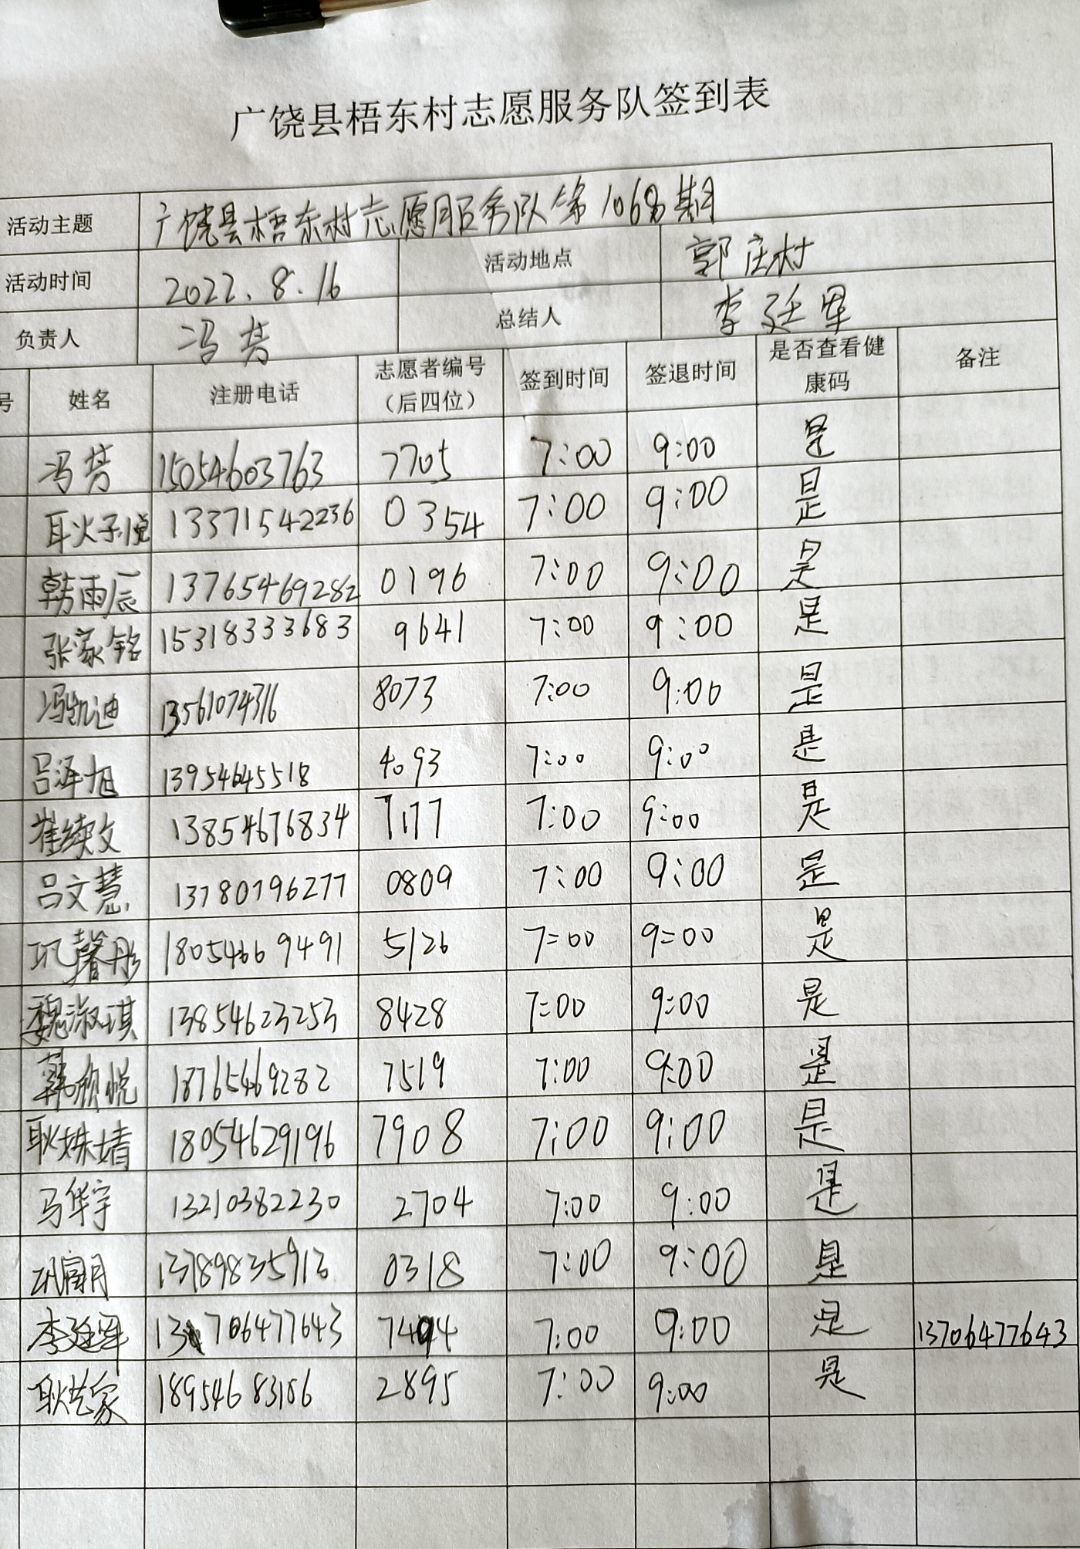 广饶县梧东村志愿服务队签到表
活动主题 广饶县梧东村志愿服务队第1068期
活动时间 2022.8.16 活动地点 郭庄村
负责人 冯芳 总结人 李廷军
号 姓名 注册电话 志愿者编号（后四位） 签到时间 签退时间 是否查看健康码 备注
冯芳 15054603763 7705 7:00 9:00 是
耿子悦 13371542236 0354 7:00 9:00 是
韩雨辰 13765469282 0196 7:00 9:00 是
张家铭 15318333683 9641 7:00 9:00 是
冯凯迪 13561074316 8073 7:00 9:00 是
吕泽旭 13954645518 4093 7:00 9:00 是
崔续文 13854676834 7177 7:00 9:00 是
吕文慧 13780796277 0809 7:00 9:00 是
巩馨彤 18054669491 5126 7=00 9=00 是
魏淑琪 13854623253 8428 7:00 9:00 是
韩颜悦 18765469282 7519 7:00 9:00 是
耿姝婧 18054629196 7908 7:00 9:00 是
马华宇 13210382230 2704 7:00 9:00 是
13789835913 0318 7:00 9:00 是
李廷军 13706477643 7494 7:00 9:00 是 13706477643
耿艺家 18954683156 2895 7:00 9:00 是